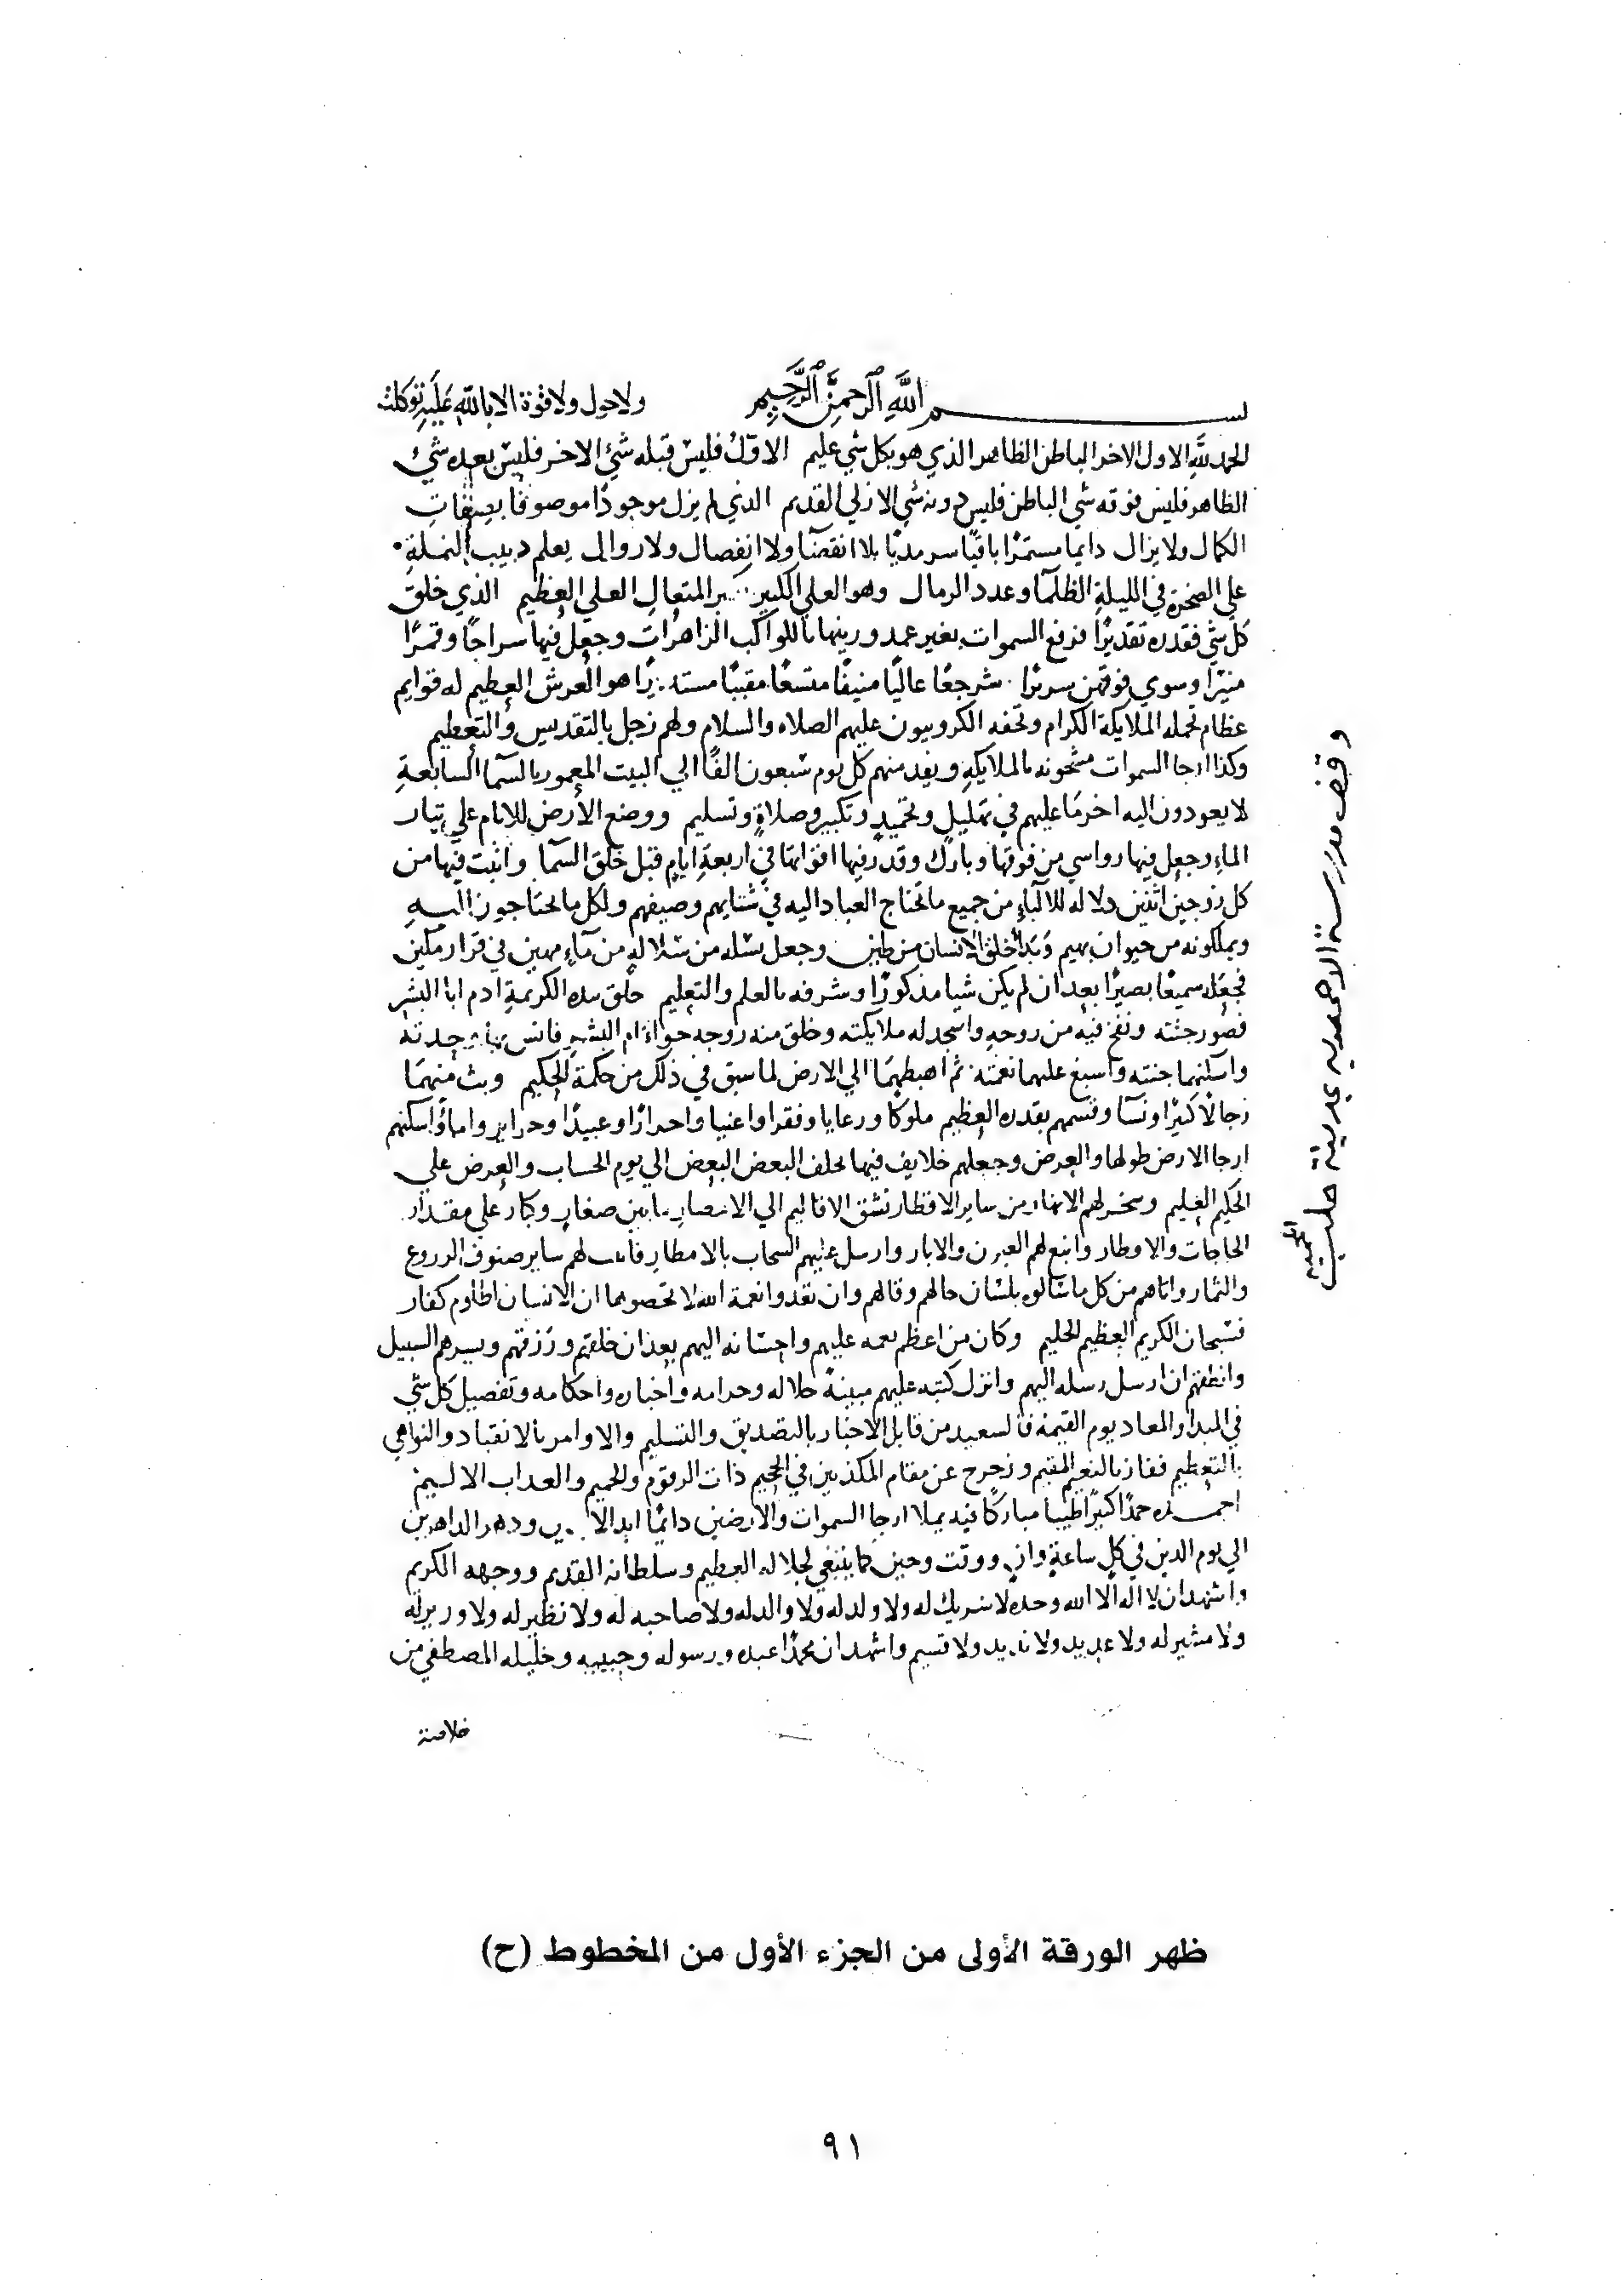 بسم الله الرحمن الرحيم ولاحول ولاقوة الا بالله عليه توكلت
الحمد لله الاول الاخر الباطن الظاهر الذي هو بكل شي عليم الاول فليس قبله شئ الاخر فليس بعده شئ
الظاهر فليس فوقه شي الباطن فليس دونه شي الازلي القديم الذي لم يزل موجودا موصوفا بصفات
الكمال ولا يزال دايما مستمرا باقيا سرمديا بلا انقضآ ولا انفصال ولا زوال يعلم دبيب النملة
علي الصخرة في الليلة الظلمآ وعدد الرمال وهو العلي الكبير المتعال العلي العظيم الذي خلق
كل شي فقدره تقديرا فرفع السموات بغير عمد وزينها بالكواكب الزاهرات وجعل فيها سراجا وقمرا
منيرا وسوي فوقهن سريرا شرجعا عاليا منيفا متسعا مقببا مستديرا هو العرش العظيم له قوايم
عظام تحمله الملايكة الكرام وتحفه الكروبيون عليهم الصلاه والسلام ولهم زجل بالتقديس والتعظيم
وكذا ارجا السموات مشحونه بالملايكه ويفد منهم كل يوم سبعون الفا الي البيت المعمور بالسما السابعة
لا يعودون اليه اخر ما عليهم في تهليل وتحميد وتكبير وصلاة وتسليم ووضع الارض للانام علي تيار
الماء وجعل فيها رواسي من فوقها وبارك وقدر فيها اقواتها في اربعة ايام قبل خلق السمآ وانبت فيها من
كل زوجين اثنين دلاله للالباء من جميع ما يحتاج العباد اليه في شتايهم وصيفهم ولكل ما يحتاجون اليه
ويملكونه من حيوان بهيم وبدأ خلق الانسان من طين وجعل نسله من سلالة من مآء مهين في قرار مكين
فجعله سميعا بصيرا بعد ان لم يكن شيا مذكورا وشرفه بالعلم والتعليم خلق بيده الكريمة ادم ابا البشر
فصور جثته ونفخ فيه من روحه واسجد له ملايكته وخلق منه زوجه حواء ام البشر فانس بها وحدته
واسكنهما جنته واسبغ عليهما نعمته ثم اهبطهما الي الارض لما سبق في ذلك من حكمة الحكيم وبث منهما
رجالا كثيرا ونسآ وقسمهم بقدره العظيم ملوكا ورعايا وفقرا واغنيا واحرارا وعبيدا وحراير واماء واسكنهم
ارجا الارض طولها والعرض وجعلهم خلايف فيها يخلف البعض البعض الي يوم الحساب والعرض علي
الحكيم العليم وسخر لهم الانهار من ساير الاقطار تشق الاقاليم الي الامصار ما بين صغار وكبار علي مقدار
الحاجات والاوطار وانبع لهم العيون والابار وارسل عليهم السحاب بالامطار فانبت لهم ساير صنوف الزروع
والثمار واتاهم من كل ما سالوه بلسان حالهم وقالهم وان تعدوا نعمة الله لا تحصوها ان الانسان لظلوم كفار
فسبحان الكريم العظيم الحليم وكان من اعظم نعمه عليهم واحسانه اليهم بعد ان خلقهم ورزقهم ويسر هم السبيل
وانطقهم ان ارسل رسله اليهم وانزل كتبه عليهم مبينة حلاله وحرامه واخباره واحكامه وتفصيل كل شي
في المبدا والمعاد يوم القيمة فالسعيد من قابل الاخبار بالتصديق والتسليم والاوامر بالانقياد والنواهي
بالتعظيم ففاز بالنعيم المقيم وزحزح عن مقام المكذبين في الجحيم ذات الزقوم والحميم والعذاب الاليم
احمده حمدا كثيرا طيبا مباركا فيه يملا ارجا السموات والارضين دائما ابد الابدين ودهر الداهرين
الي يوم الدين في كل ساعة وان ووقت وحين كما ينبغي لجلاله العظيم وسلطانه القديم ووجهه الكريم
واشهد ان لا اله الا الله وحده لا شريك له ولا ولد له ولا والد له ولا صاحبه له ولا نظير له ولا وزير له
ولا مشير له ولا عديد ولا نديد ولا قسيم واشهد ان محمدا عبده ورسوله وحبيبه وخليله المصطفي من
خلاصة
وقف مدرسة الاحمديه بمدينة حلب
المحمية
ظهر الورقة الأولى من الجزء الأول من المخطوط (ح)
٩١